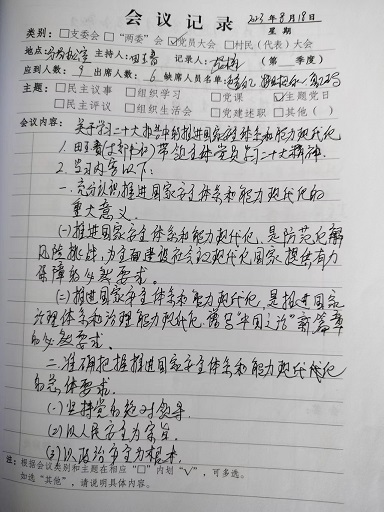 会议记录
2023年8月18日
星期
类别：□支委会 □“两委”会 ☑党员大会 □村民（代表）大会
地点： 主持人：田玉喜 记录人： （ 第 季度）
应到人数：9 出席人数：6 缺席人员名单：
主题：□民主议事 □组织学习 □党课 ☑主题党日
□民主评议 □组织生活会 □党建述职 □其他（ ）
会议内容： 关于学习二十大报告中的推进国家安全体系和能力现代化
1.田玉喜(支部书记)带领全体党员学习二十大精神.
2.学习内容以下：
一.充分认识推进国家安全体系和能力现代化的
重大意义.
(一)推进国家安全体系和能力现代化，是防范化解
风险挑战，为全面建设社会主义现代化国家提供有力
保障的必然要求。
(二)推进国家安全体系和能力现代化，是推进国家
治理体系和治理能力现代化，谱写“中国之治”新篇章
的必然要求。
二.准确把握推进国家安全体系和能力现代化
的总体要求.
(一)坚持党的绝对领导.
(二)以人民安全为宗旨.
(三)以政治安全为根本.
注：根据会议类别和主题在相应“□”内划“√”，可多选。
如选“其他”，请说明具体内容。